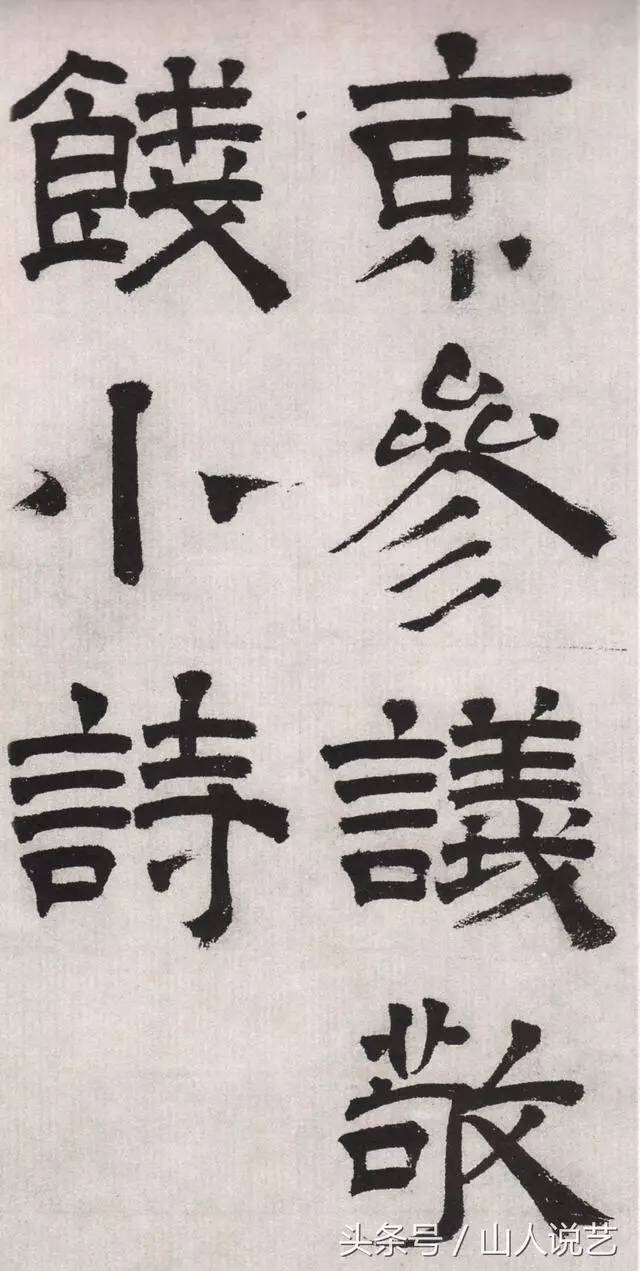 京參議敬
餞小詩
头条号 / 山人说艺